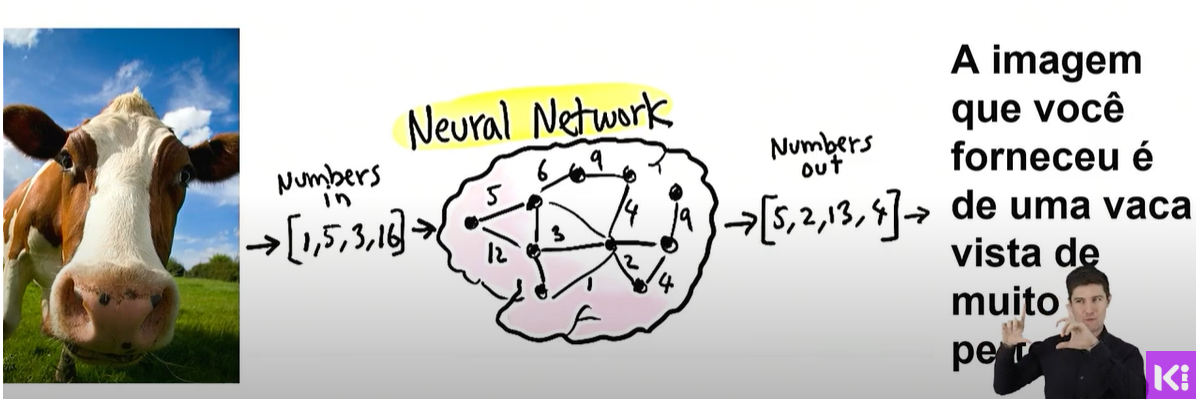 Neural Network
Numbers
in
[1,5,3,16]
5
6
9
12
3
4
9
1
2
4
Numbers
out
[5,2,13,4]
A imagem
que você
forneceu é
de uma vaca
vista de
muito
Ki